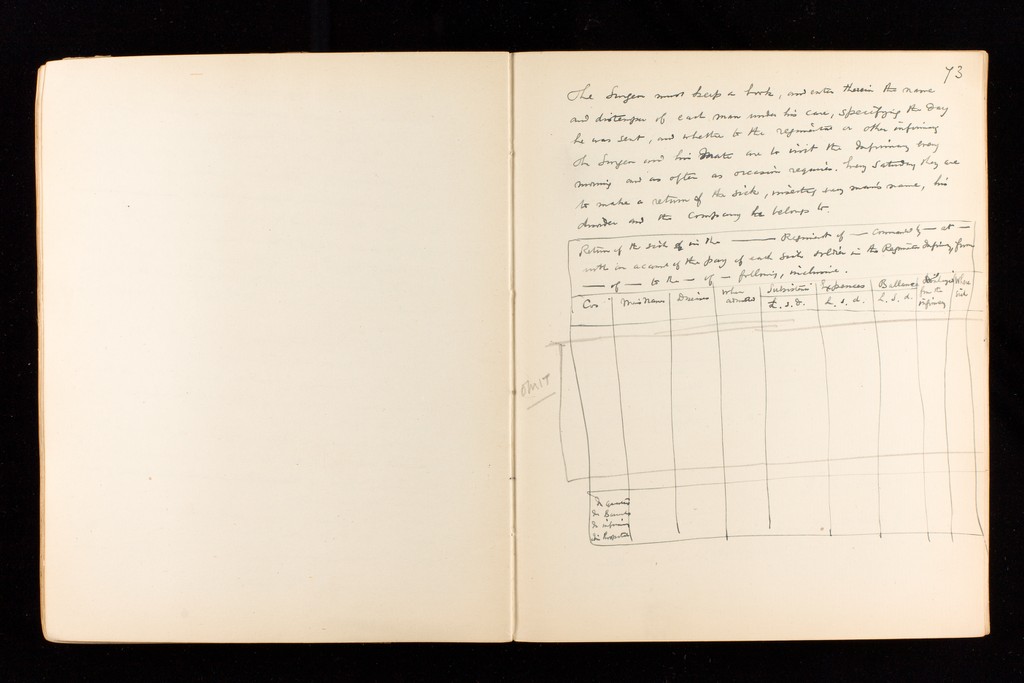 73
The Surgeon must keep a book, and enter therein the name
and distemper of each man under his care, specifying the Day
he was sent, and whether to the regimental or other infirmary
The Surgeon and his Mate are to visit the Infirmary every
morning and as often as occasion requires. Every Saturday they are
to make a return of the sick, inserting every man's name, his
disorder and the Company he belongs to.
Return of the sick in the — Regiment of — Command by — at —
with an account of the pay of each sick soldier in the Regimental Infirmary, from
— of — to the — of — following, inclusive.
Cos Mens Names Diseases When admitted Subsistence £. s. d. Expences £. s. d. Ballance £. s. d. discharged from the infirmary When
omit
In quarters
In Barracks
In infirmary
In Hospital